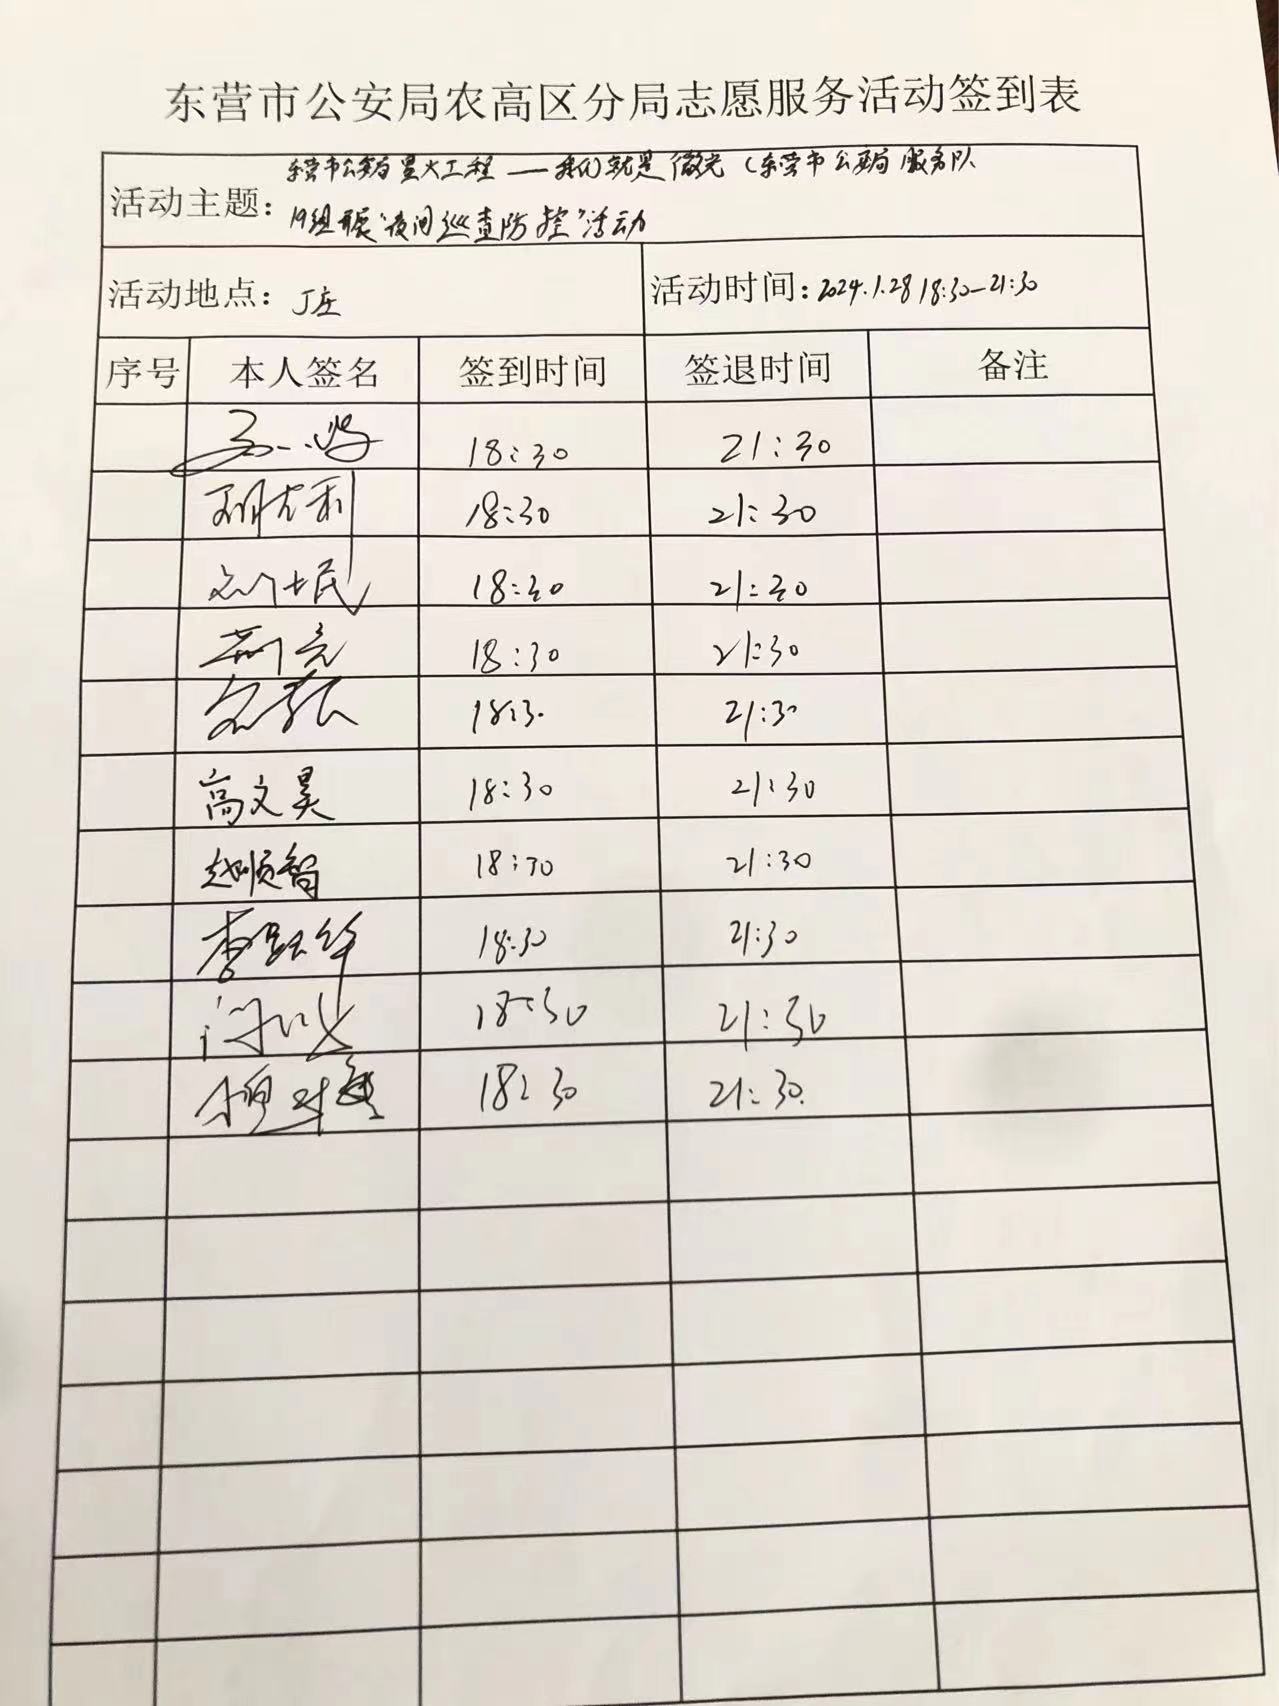 东营市公安局农高区分局志愿服务活动签到表
东营市公安局星火工程——我们就是微光（东营市公安局服务队
活动主题：
19组开展“夜间巡查防控”活动
活动地点：丁庄 活动时间：2024.1.28 18:30—21:30
序号 本人签名 签到时间 签退时间 备注
18:30 21:30
18:30 21:30
18:30 21:30
18:30 21:30
18:30 21:30
高文昊 18:30 21:30
赵顺智 18:30 21:30
李跃华 18:30 21:30
18:30 21:30
18:30 21:30.